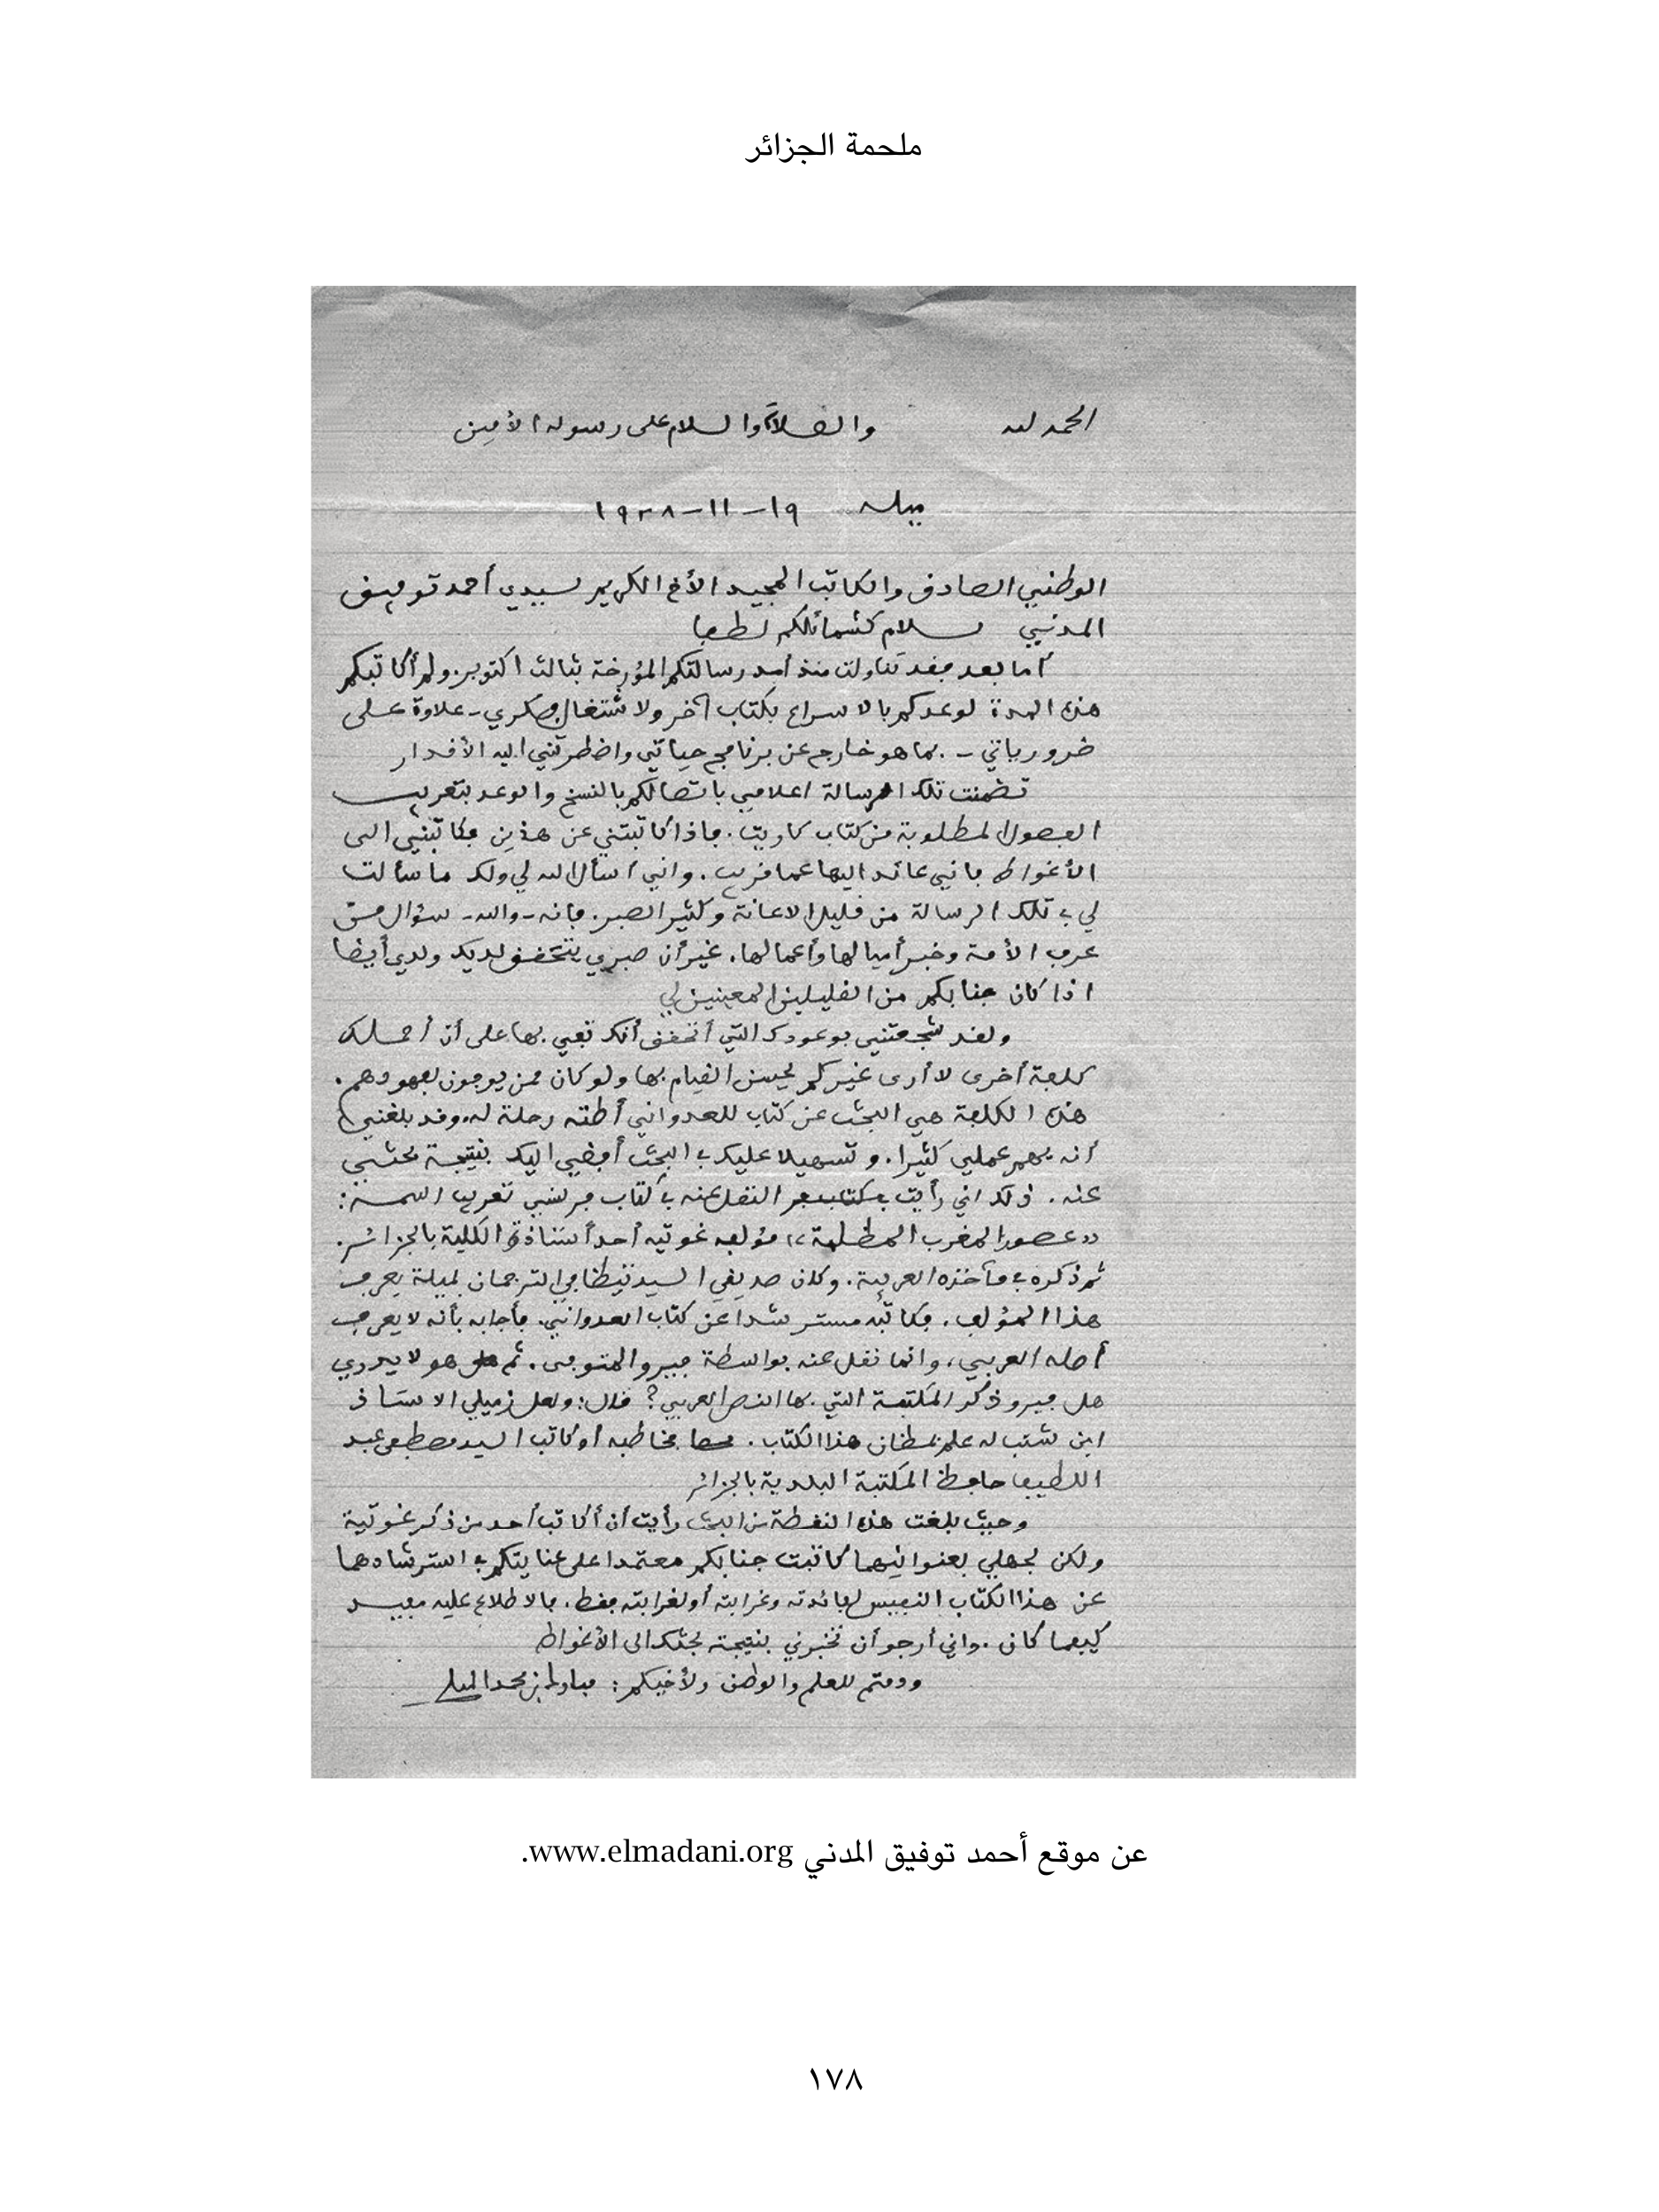 ملحمة الجزائر
الحمد لله والصلاة والسلام على رسوله الأمين
ميلة ١٩-١١-١٩٢٨
الوطني الصادق والكاتب المجيد الأخ الكريم سيدي أحمد توفيق
المدني سلام كشمائلكم لطفا
أما بعد فقد تناولت منذ أمد رسالتكم المؤرخة بثالث اكتوبر. ولم أكاتبكم
هذه المدة لوعدكم بالاسراع بكتاب آخر ولاشتغال فكري - علاوة على
ضرورياتي - بما هو خارج عن برنامج حياتي واضطرتني اليه الأقدار
تضمنت تلك الرسالة اعلامي باتصالكم بالنسخ والوعد بتعريب
الفصول المطلوبة من كتاب كاريت. فاذا كاتبتني عن هذين فكاتبني الى
الأغواط فاني عائد اليها عما قريب. واني أسأل الله لي ولك ما سألت
لي في تلك الرسالة من قليل الاعانة وكثير الصبر. فانه - والله - سؤال من
عرف الأمة وخبر أميالها وأعمالها. غير أن صبري يتحقق لديك ولدي أيضا
اذا كان جنابكم من القليلين المعينين لي
ولقد شجعتني بوعودك التي أتحقق أنك تفي بها على أن أحملك
كلفة أخرى لا أرى غيركم يحسن القيام بها ولو كان ممن يوفون بعهودهم.
هذه الكلفة هي البحث عن كتاب للعدواني أظنه رحلة له. وقد بلغني
أنه يهم عملي كثيرا. وتسهيلا عليك في البحث أفضي اليك بنتيجة بحثي
عنه. ذلك اني رأيت النقل عنه في كتاب فرنسي تعريب اسمه:
«عصور المغرب المظلمة» مؤلفه غوتيه أحد أساتذة الكلية بالجزائر.
ثم ذكره في مآخذه العربية. وكان صديقي السيد الترجمان بميلة يعرف
هذا المؤلف. فكاتبه مسترشدا عن كتاب العدواني. فأجابه بأنه لا يعرف
أصله العربي، وانما نقل عنه بواسطة فيرو المتوفى. ثم هو لا يدري
هل فيرو ذكر المكتبة التي بها النص العربي؟ قال: ولعل زميلي الاستاذ
ابن شنب له علم بمظان هذا الكتاب. مخاطبه أو كاتب السيد مصطفى عبد
اللطيف حافظ المكتبة البلدية بالجزائر
وحيث بلغت هذه النقطة من البحث رأيت أن أكاتب أحد من ذكر غوتيه
ولكن لجهلي بعنوانيهما كاتبت جنابكم معتمدا على عنايتكم في استرشادهما
عن هذا الكتاب النفيس لفائدته وغرابته أو لغرابته فقط. فالاطلاع عليه مفيد
كيفما كان. واني أرجو أن تخبرني بنتيجة بحثك الى الأغواط
ودمتم للعلم والوطن ولأخيكم: مبارك بن محمد الميلي
عن موقع أحمد توفيق المدني www.elmadani.org.
١٧٨